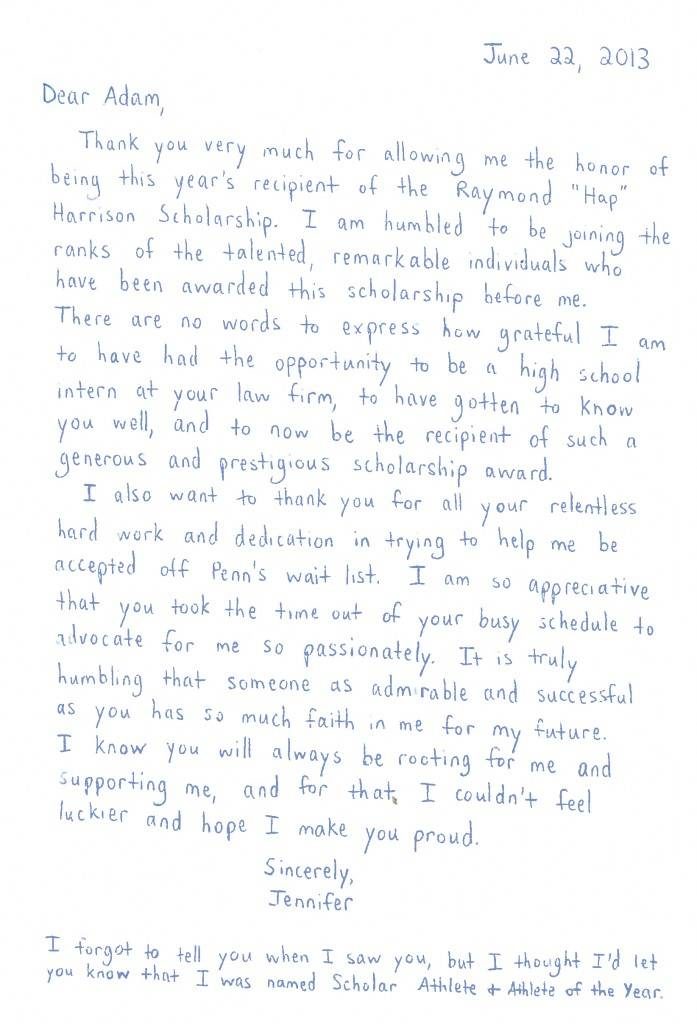 June 22, 2013
Dear Adam,
Thank you very much for allowing me the honor of
being this year's recipient of the Raymond "Hap"
Harrison Scholarship. I am humbled to be joining the
ranks of the talented, remarkable individuals who
have been awarded this scholarship before me.
There are no words to express how grateful I am
to have had the opportunity to be a high school
intern at your law firm, to have gotten to know
you well, and to now be the recipient of such a
generous and prestigious scholarship award.
I also want to thank you for all your relentless
hard work and dedication in trying to help me be
accepted off Penn's wait list. I am so appreciative
that you took the time out of your busy schedule to
advocate for me so passionately. It is truly
humbling that someone as admirable and successful
as you has so much faith in me for my future.
I know you will always be rooting for me and
supporting me, and for that, I couldn't feel
luckier and hope I make you proud.
Sincerely,
Jennifer
I forgot to tell you when I saw you, but I thought I'd let
you know that I was named Scholar Athlete + Athlete of the Year.